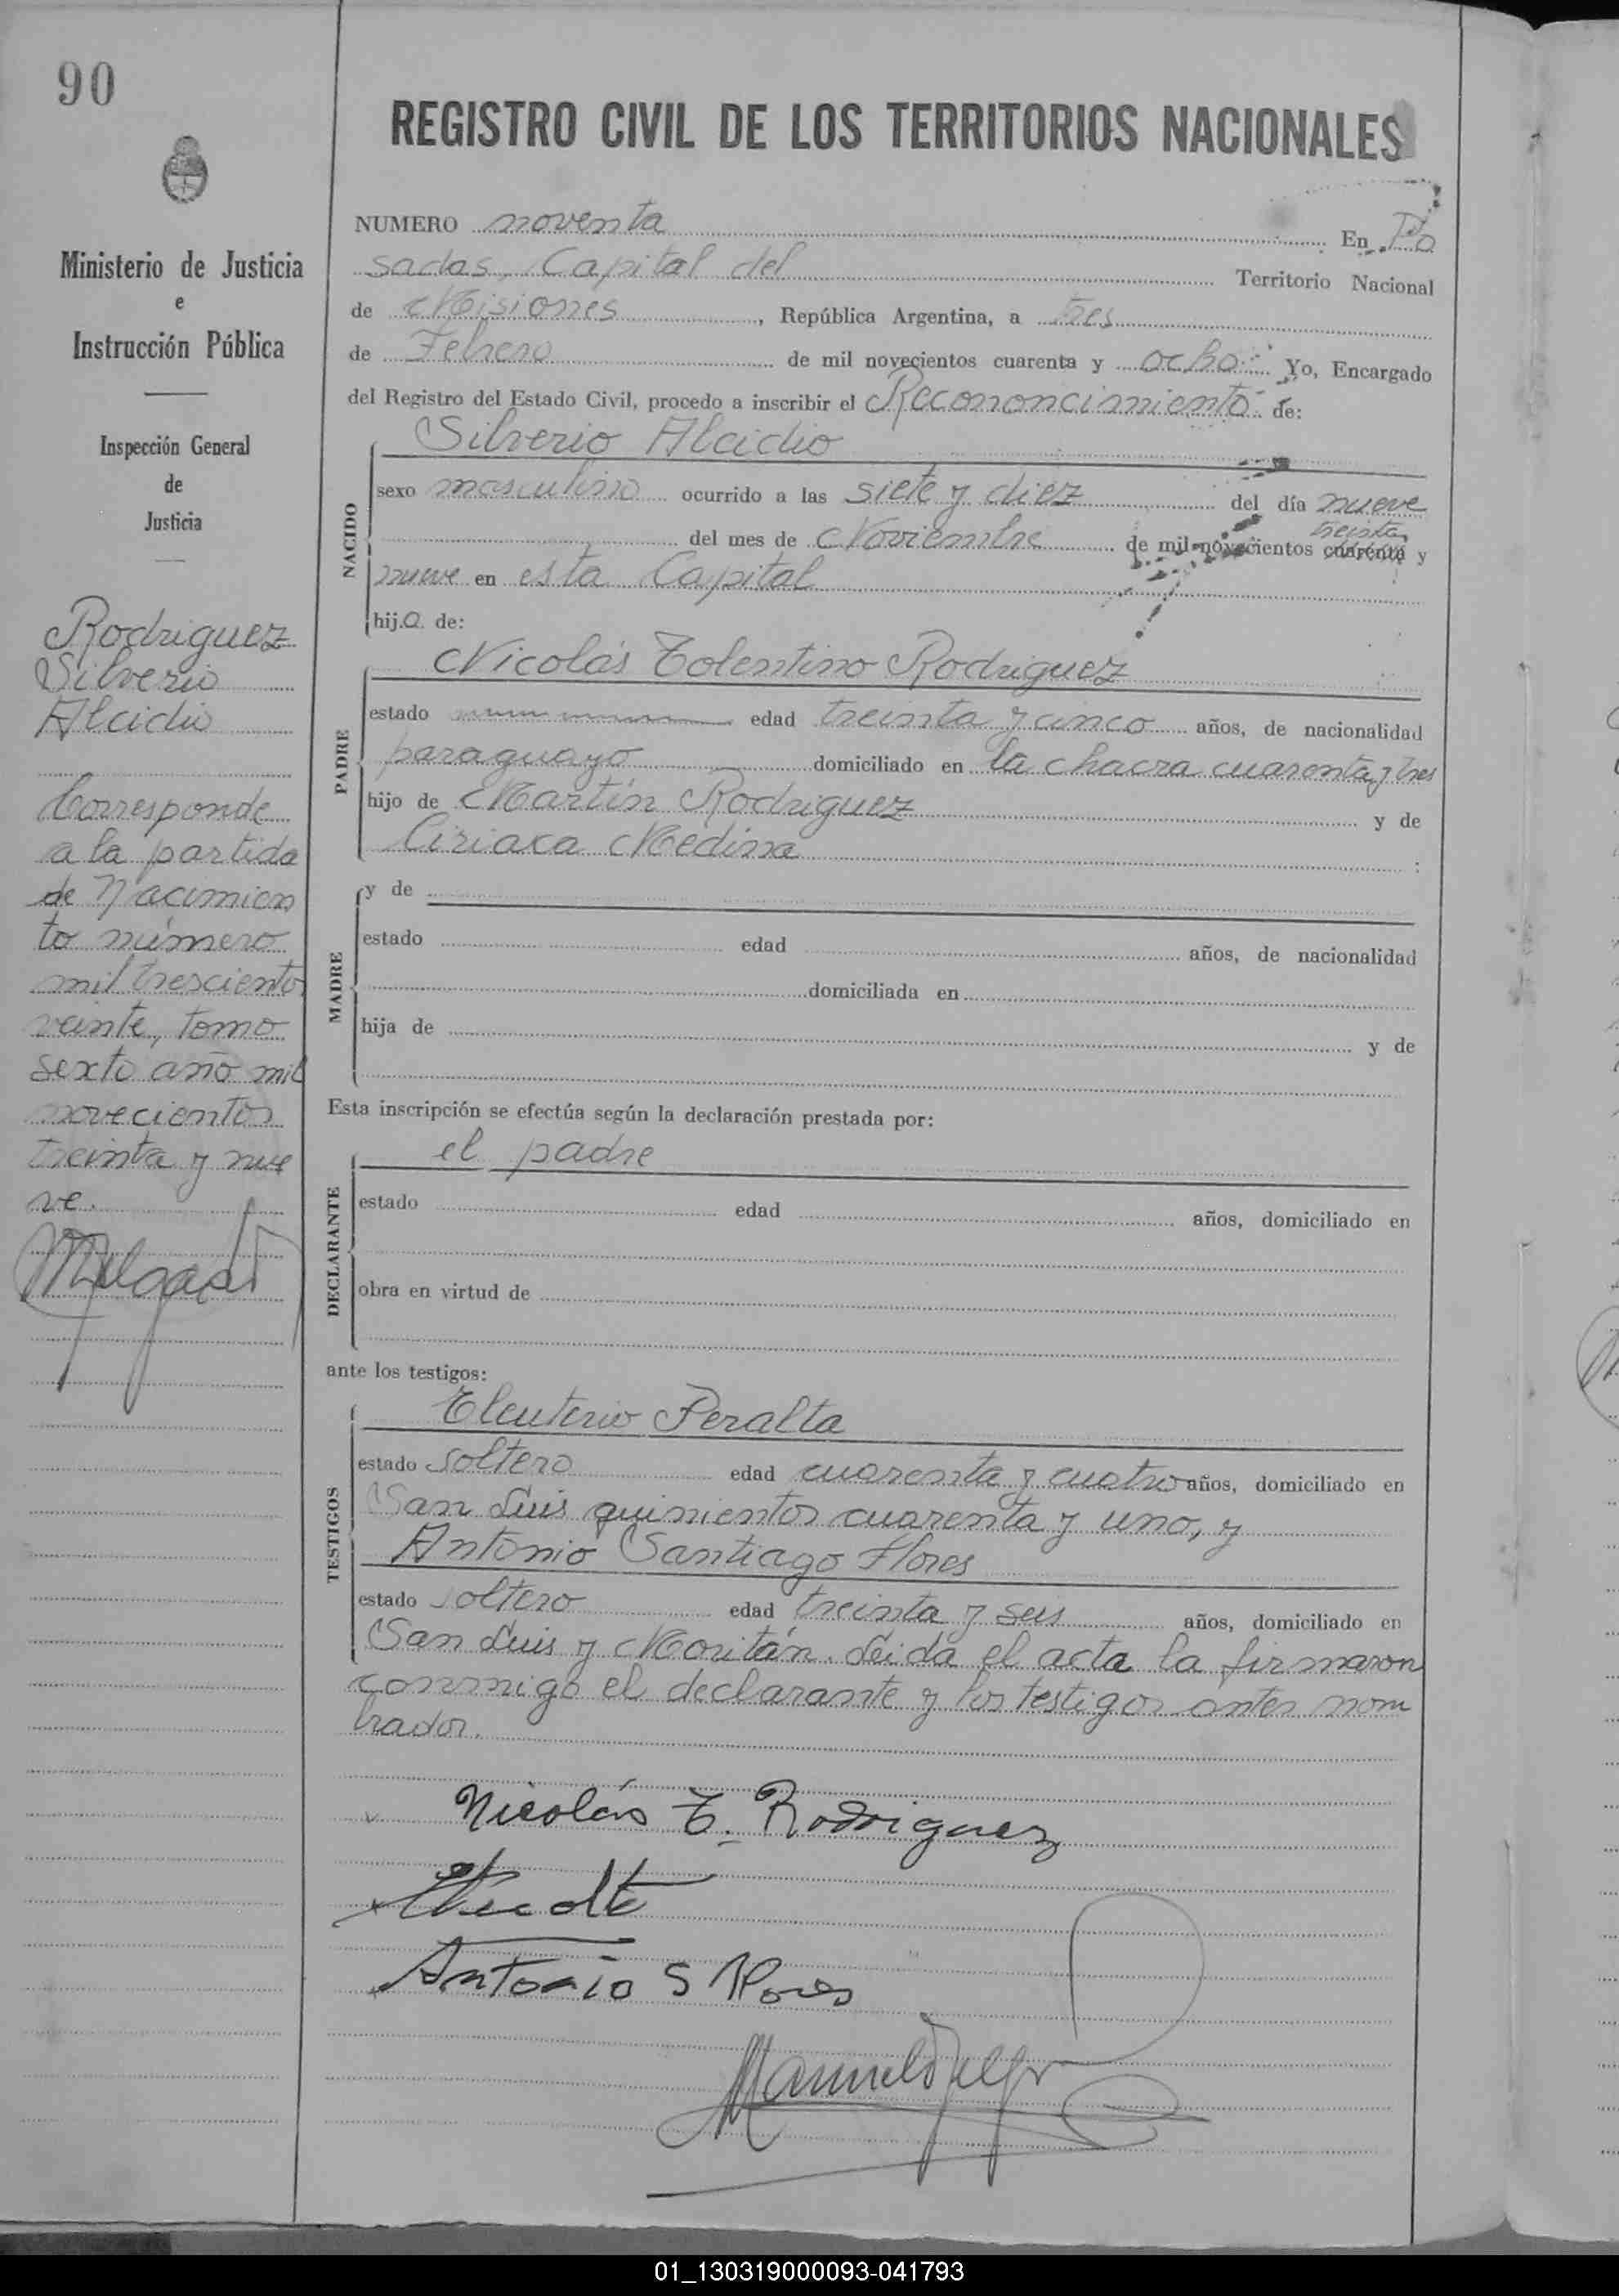 90
Ministerio de Justicia
e
Instrucción Pública
Inspección General
de
Justicia
Rodriguez
Silverio
Alcidio
Corresponde
a la partida
de Nacimien
to número
mil trescientos
veinte, tomo
sexto año mil
novecientos
treinta y nue
ve.
REGISTRO CIVIL DE LOS TERRITORIOS NACIONALES
NUMERO noventa En Po
sadas, Capital del Territorio Nacional
de Misiones, República Argentina, a tres
de Febrero de mil novecientos cuarenta y ocho Yo, Encargado
del Registro del Estado Civil, procedo a inscribir el Recononcimiento de:
Silverio Alcidio
NACIDO
sexo masculino ocurrido a las siete y diez del día nueve
del mes de Noviembre de mil novecientos cuarenta treinta y
nueve en esta Capital
hijo de:
Nicolás Tolentino Rodriguez
PADRE
estado edad treinta y cinco años, de nacionalidad
paraguayo domiciliado en la chacra cuarenta y tres
hijo de Martín Rodriguez y de
Ciriaca Medina
MADRE
y de
estado edad años, de nacionalidad
domiciliada en
hija de y de
Esta inscripción se efectúa según la declaración prestada por:
el padre
DECLARANTE
estado edad años, domiciliado en
obra en virtud de
ante los testigos:
Eleuterio Peralta
TESTIGOS
estado soltero edad cuarenta y cuatro años, domiciliado en
San Luis quinientos cuarenta y uno, y
Antonio Santiago Flores
estado soltero edad treinta y seis años, domiciliado en
San Luis y Moritán. Leida el acta la firmaron
conmigo el declarante y los testigos antes nom
brados.
Nicolás T. Rodriguez
Antonio S Flores
01_130319000093-041793